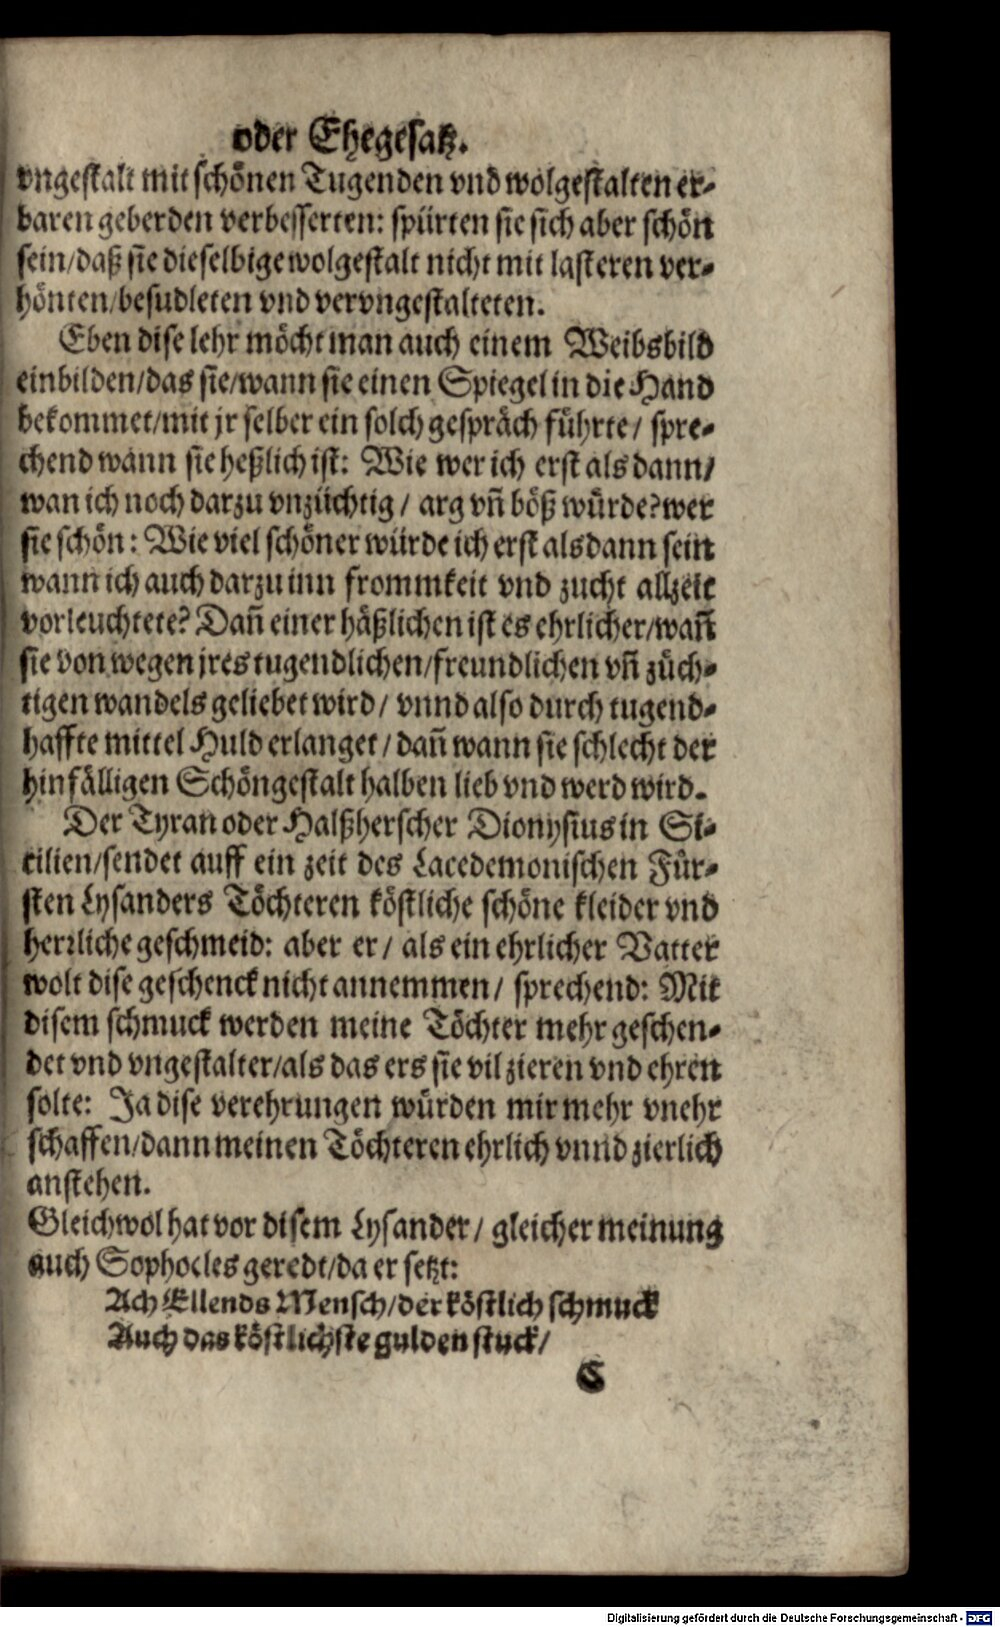 oder Ehegesatz.
vngestalt mit schönen Tugenden vnd wolgestalten er-
baren geberden verbesserten: spürten sie sich aber schön
sein/daß sie dieselbige wolgestalt nicht mit lasteren ver-
hönten/besudleten vnd vervngestalteten.
Eben dise lehr möcht man auch einem Weibsbild
einbilden/das sie/wann sie einen Spiegel in die Hand
bekommet/mit jr selber ein solch gespräch führte/ spre-
chend wann sie heßlich ist: Wie wer ich erst als dann/
wan ich noch darzu vnzüchtig/ arg vñ böß würde? wer
sie schön: Wie viel schöner würde ich erst alsdann sein
wann ich auch darzu inn frommkeit vnd zucht allzeit
vorleuchtete? Dañ einer häßlichen ist es ehrlicher/wañ
sie von wegen jres tugendlichen/freundlichen vñ züch-
tigen wandels geliebet wird/ vnnd also durch tugend-
haffte mittel Huld erlanget/ dañ wann sie schlecht der
hinfälligen Schöngestalt halben lieb vnd werd wird.
Der Tyran oder Halßherscher Dionysius in Si-
cilien/sendet auff ein zeit des Lacedemonischen Für-
sten Lysanders Töchteren köstliche schöne kleider vnd
herrliche geschmeid: aber er/ als ein ehrlicher Vatter
wolt dise geschenck nicht annemmen/ sprechend: Mit
disem schmuck werden meine Töchter mehr geschen-
det vnd vngestalter/als das ers sie vil zieren vnd ehren
solte: Ja dise verehrungen würden mir mehr vnehr
schaffen/dann meinen Töchteren ehrlich vnnd zierlich
anstehen.
Gleichwol hat vor disem Lysander/ gleicher meinung
auch Sophocles geredt/da er setzt:
Ach Ellends Mensch/der köstlich schmuck
Auch das köstlichste gulden stuck/
C
Digitalisierung gefördert durch die Deutsche Forschungsgemeinschaft - DFG